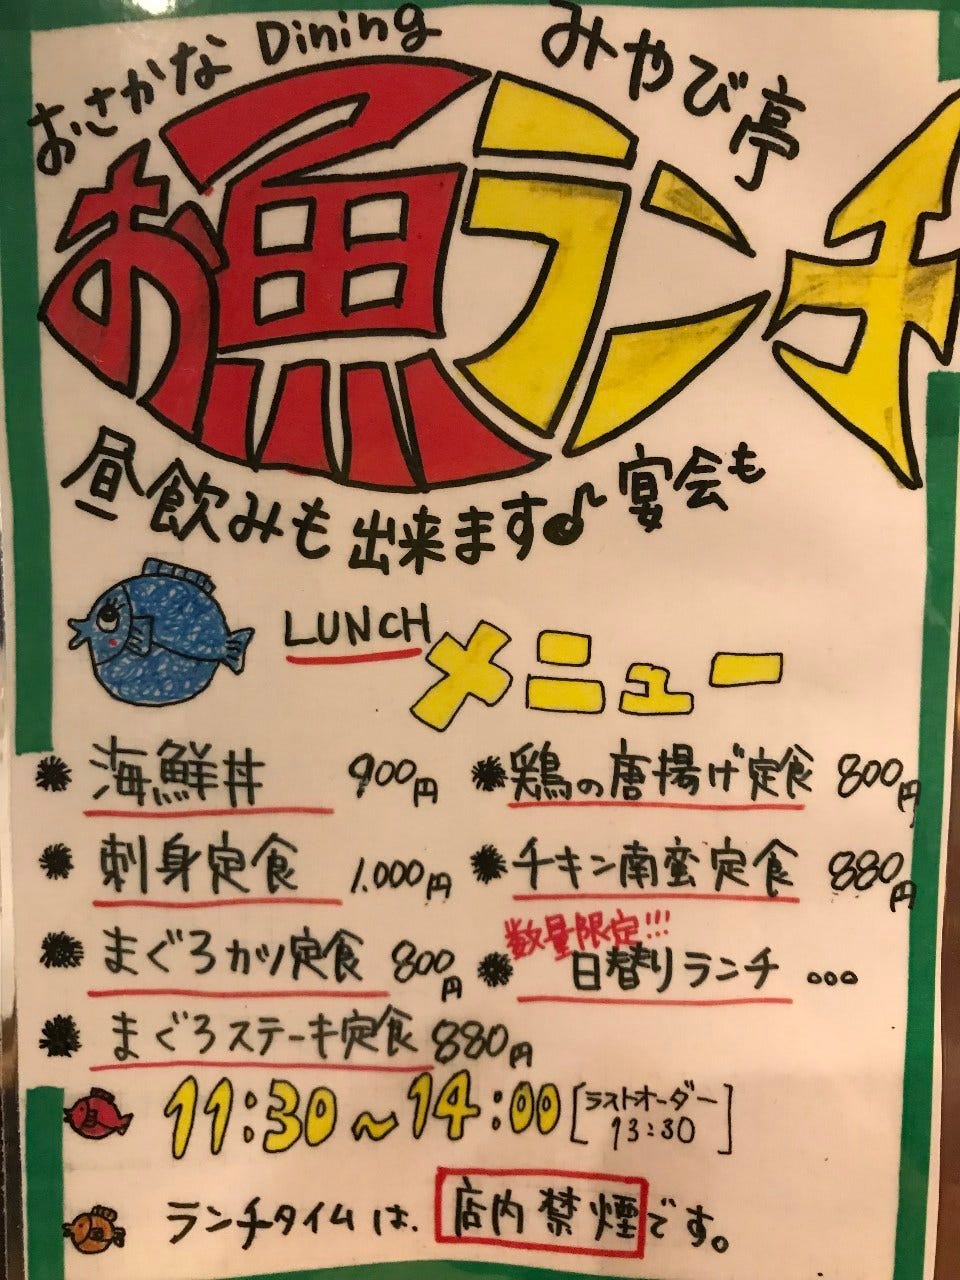 おさかな Dining みやび亭
お魚ランチ
昼飲みも出来ます♪宴会も
LUNCH メニュー
海鮮丼 900円
刺身定食 1.000円
まぐろカツ定食 800円
まぐろステーキ定食 880円
鶏の唐揚げ定食 800円
チキン南蛮定食 880円
数量限定!!!
日替りランチ ...
11:30～14:00 [ラストオーダー
13:30]
ランチタイムは、店内禁煙です。